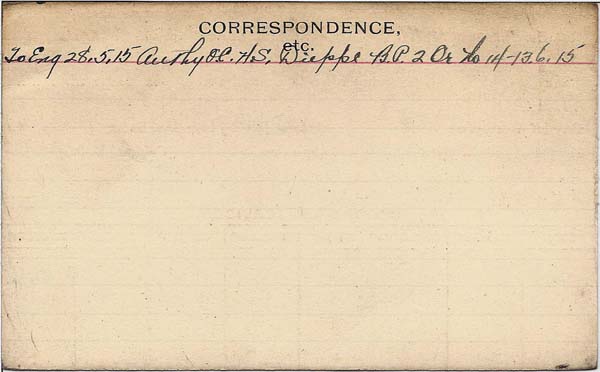 CORRESPONDENCE,
etc.
To Eng 28.5.15 Authy O.C. H.S. Dieppe B.P. 2 Or No 14-13.6.15